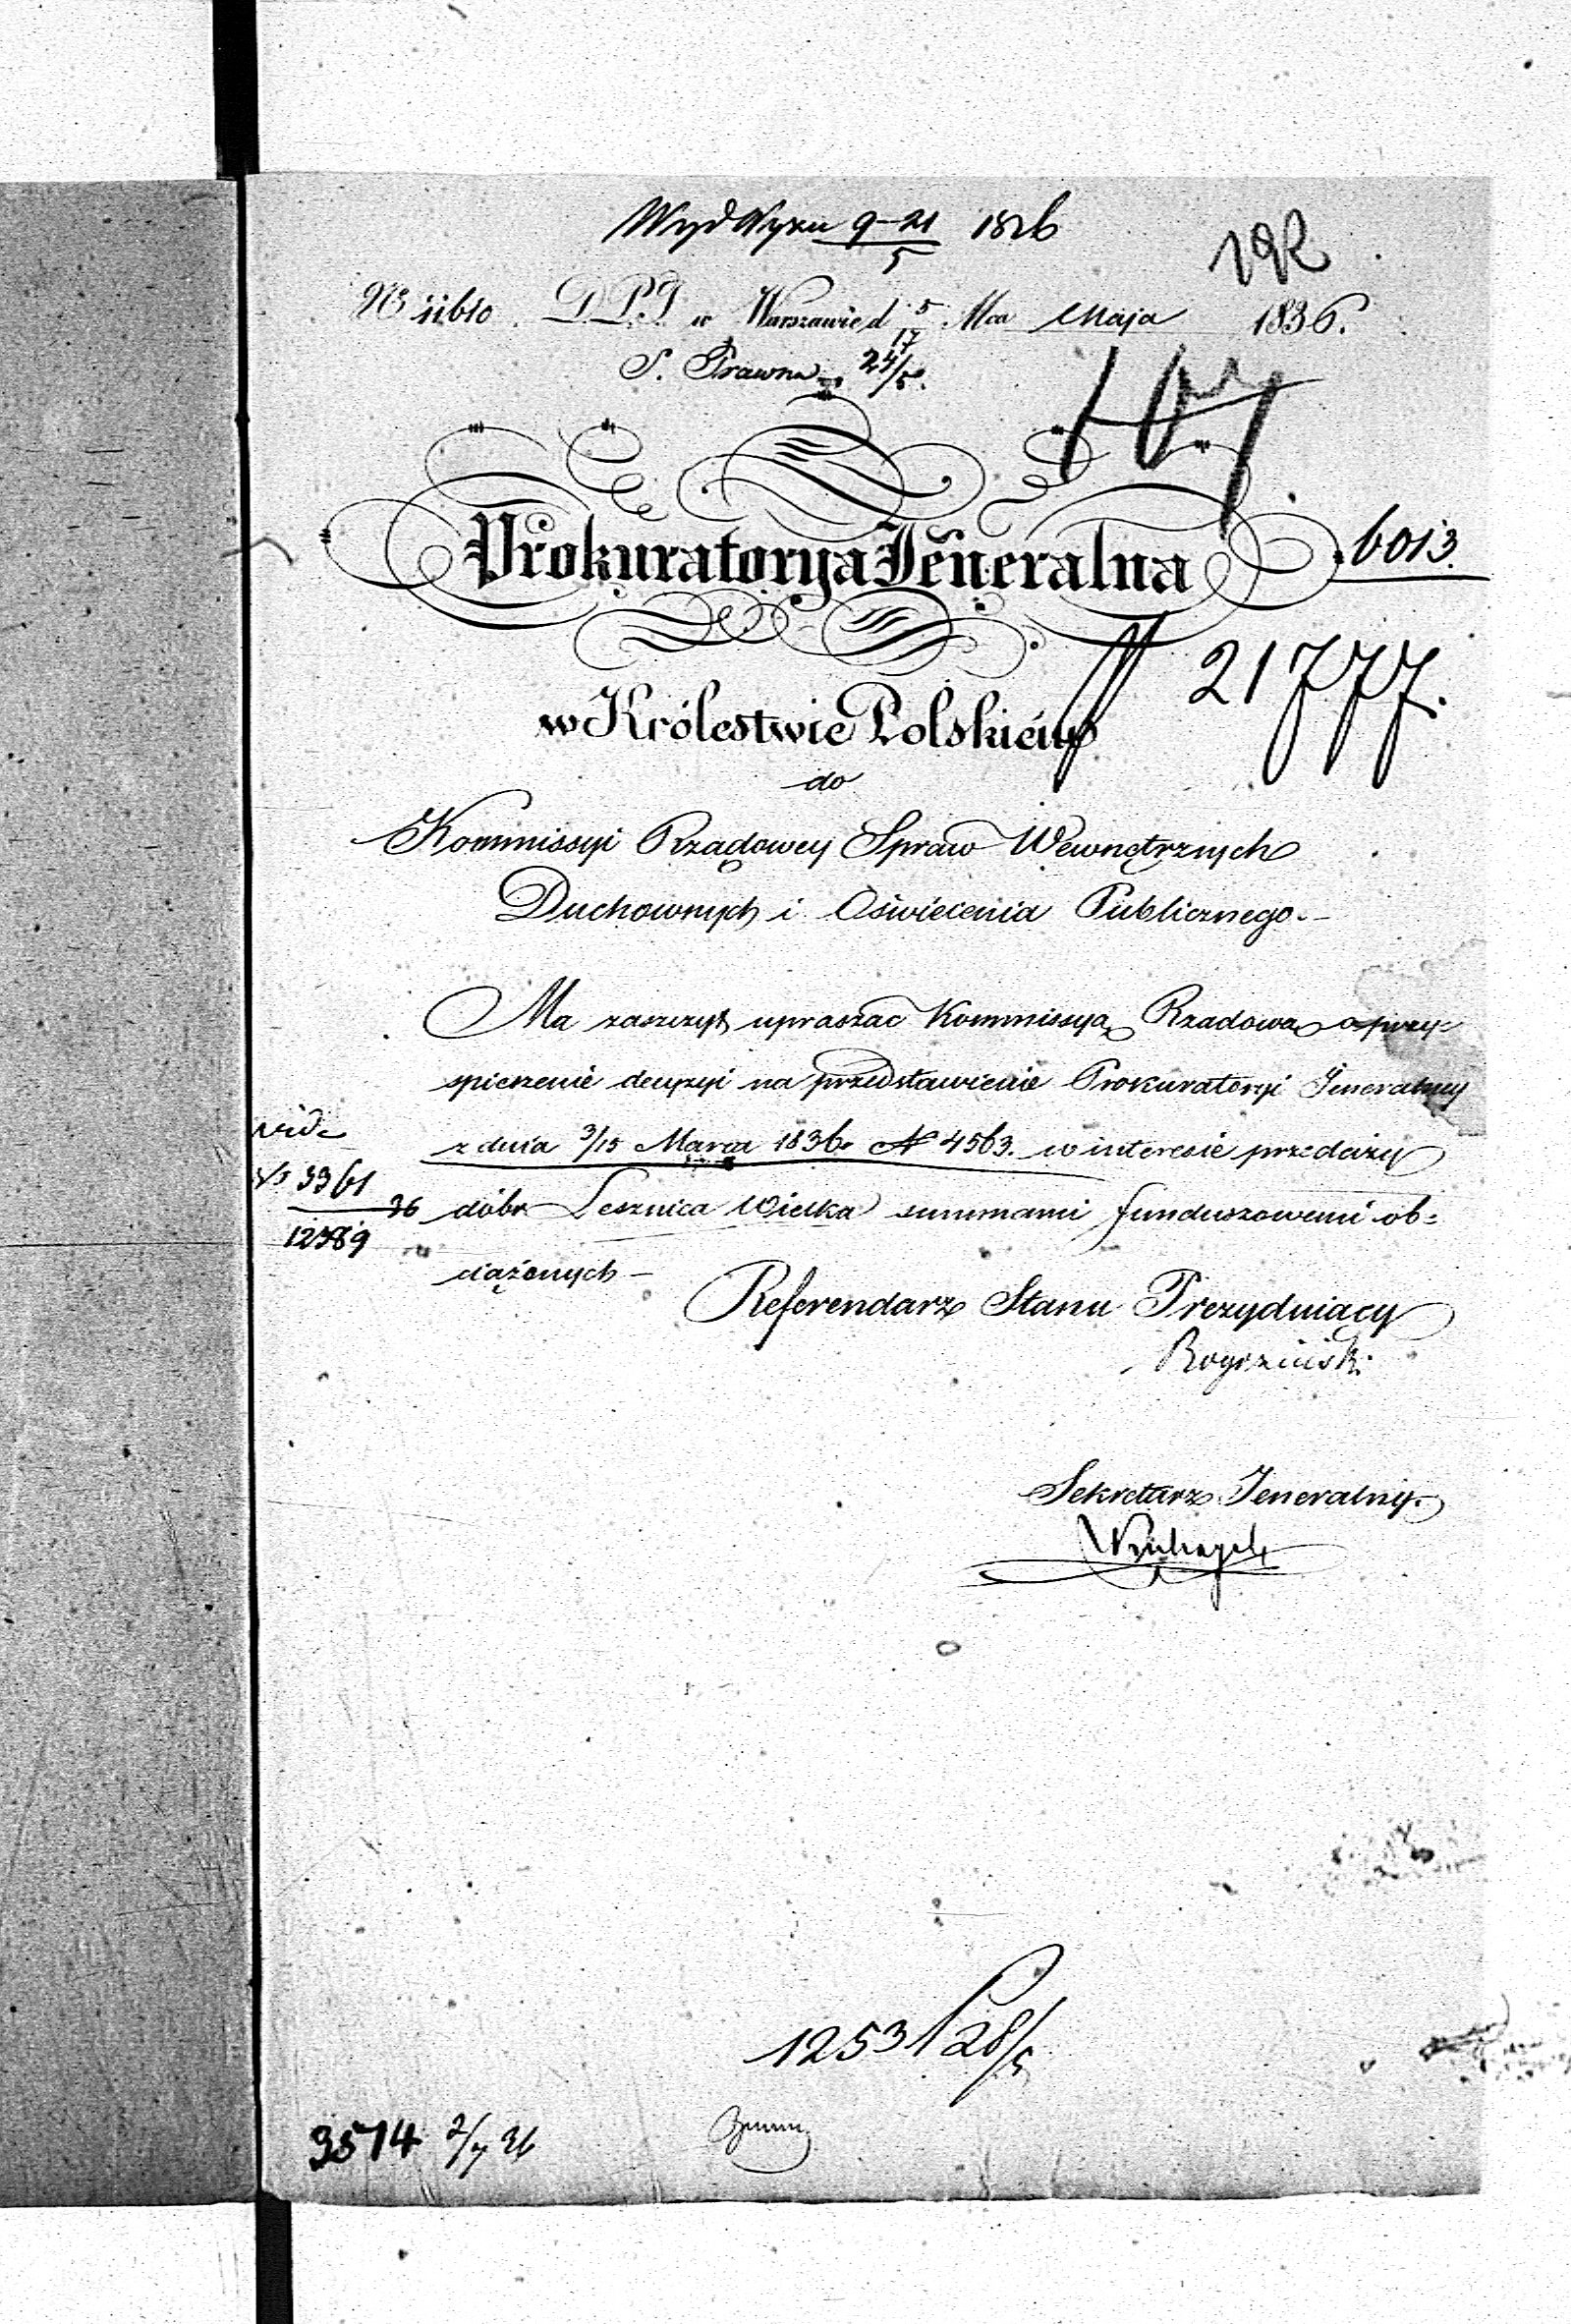 Wyd Wyzn 9-21/5 1836
192
No 11610. D.P.J w Warszawie d 5/17 Mca Maja 1836.
S. Prawna 24/5.
Prokuratorya Jeneralna
6013.
21777.
w Królestwie Polskiém
do
Kommissyi Rządowey Spraw Wewnętrznych
Duchownych i Oświecenia Publicznego.-
Ma zaszczyt upraszać Kommissyą Rządową o przy-
spieszenie decyzyi na przedstawienie Prokuratoryi Jeneralney
z dnia 3/15 Marca 1836. N 4563. w interesie przedaży
dóbr Lesznica Wielka summami funduszowemi ob=
ciążonych -
vide
No 3361
36
12389
Referendarz Stanu Prezyduiący
Sekretarz Jeneralny.
12531 28/5
3574 2/7 36